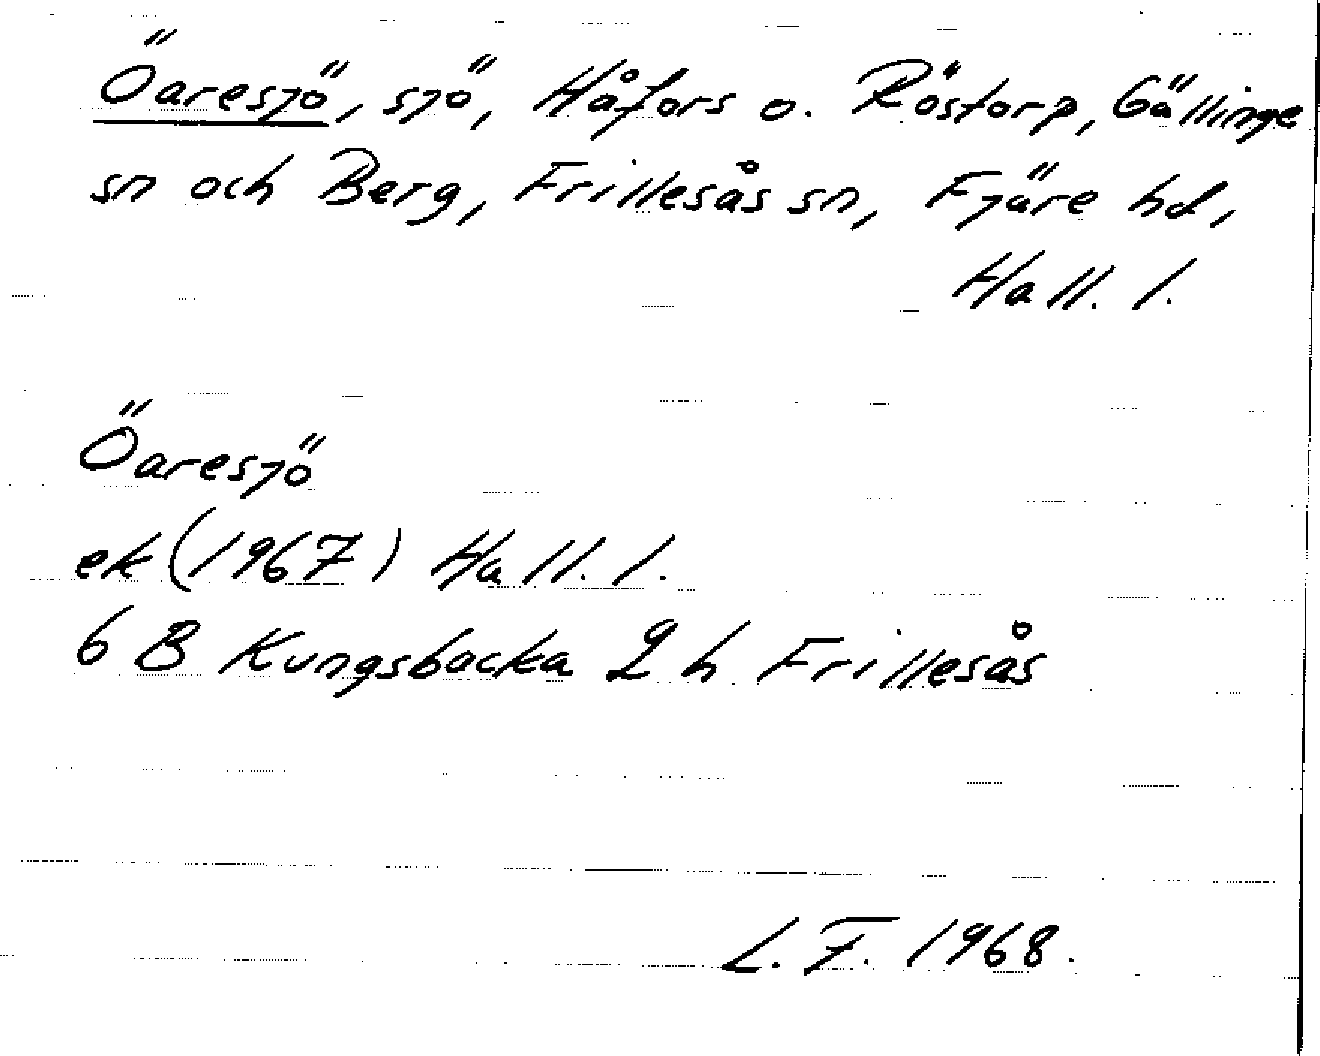 Öaresjö, sjö, Håfors o. Röstorp, Gällinge
sn och Berg, Frillesås sn, Fjäre hd,
Hall. l.
Öaresjö
ek (1967) Hall. l.
6 B Kungsbacka 2 h Frillesås
L. F. 1968.